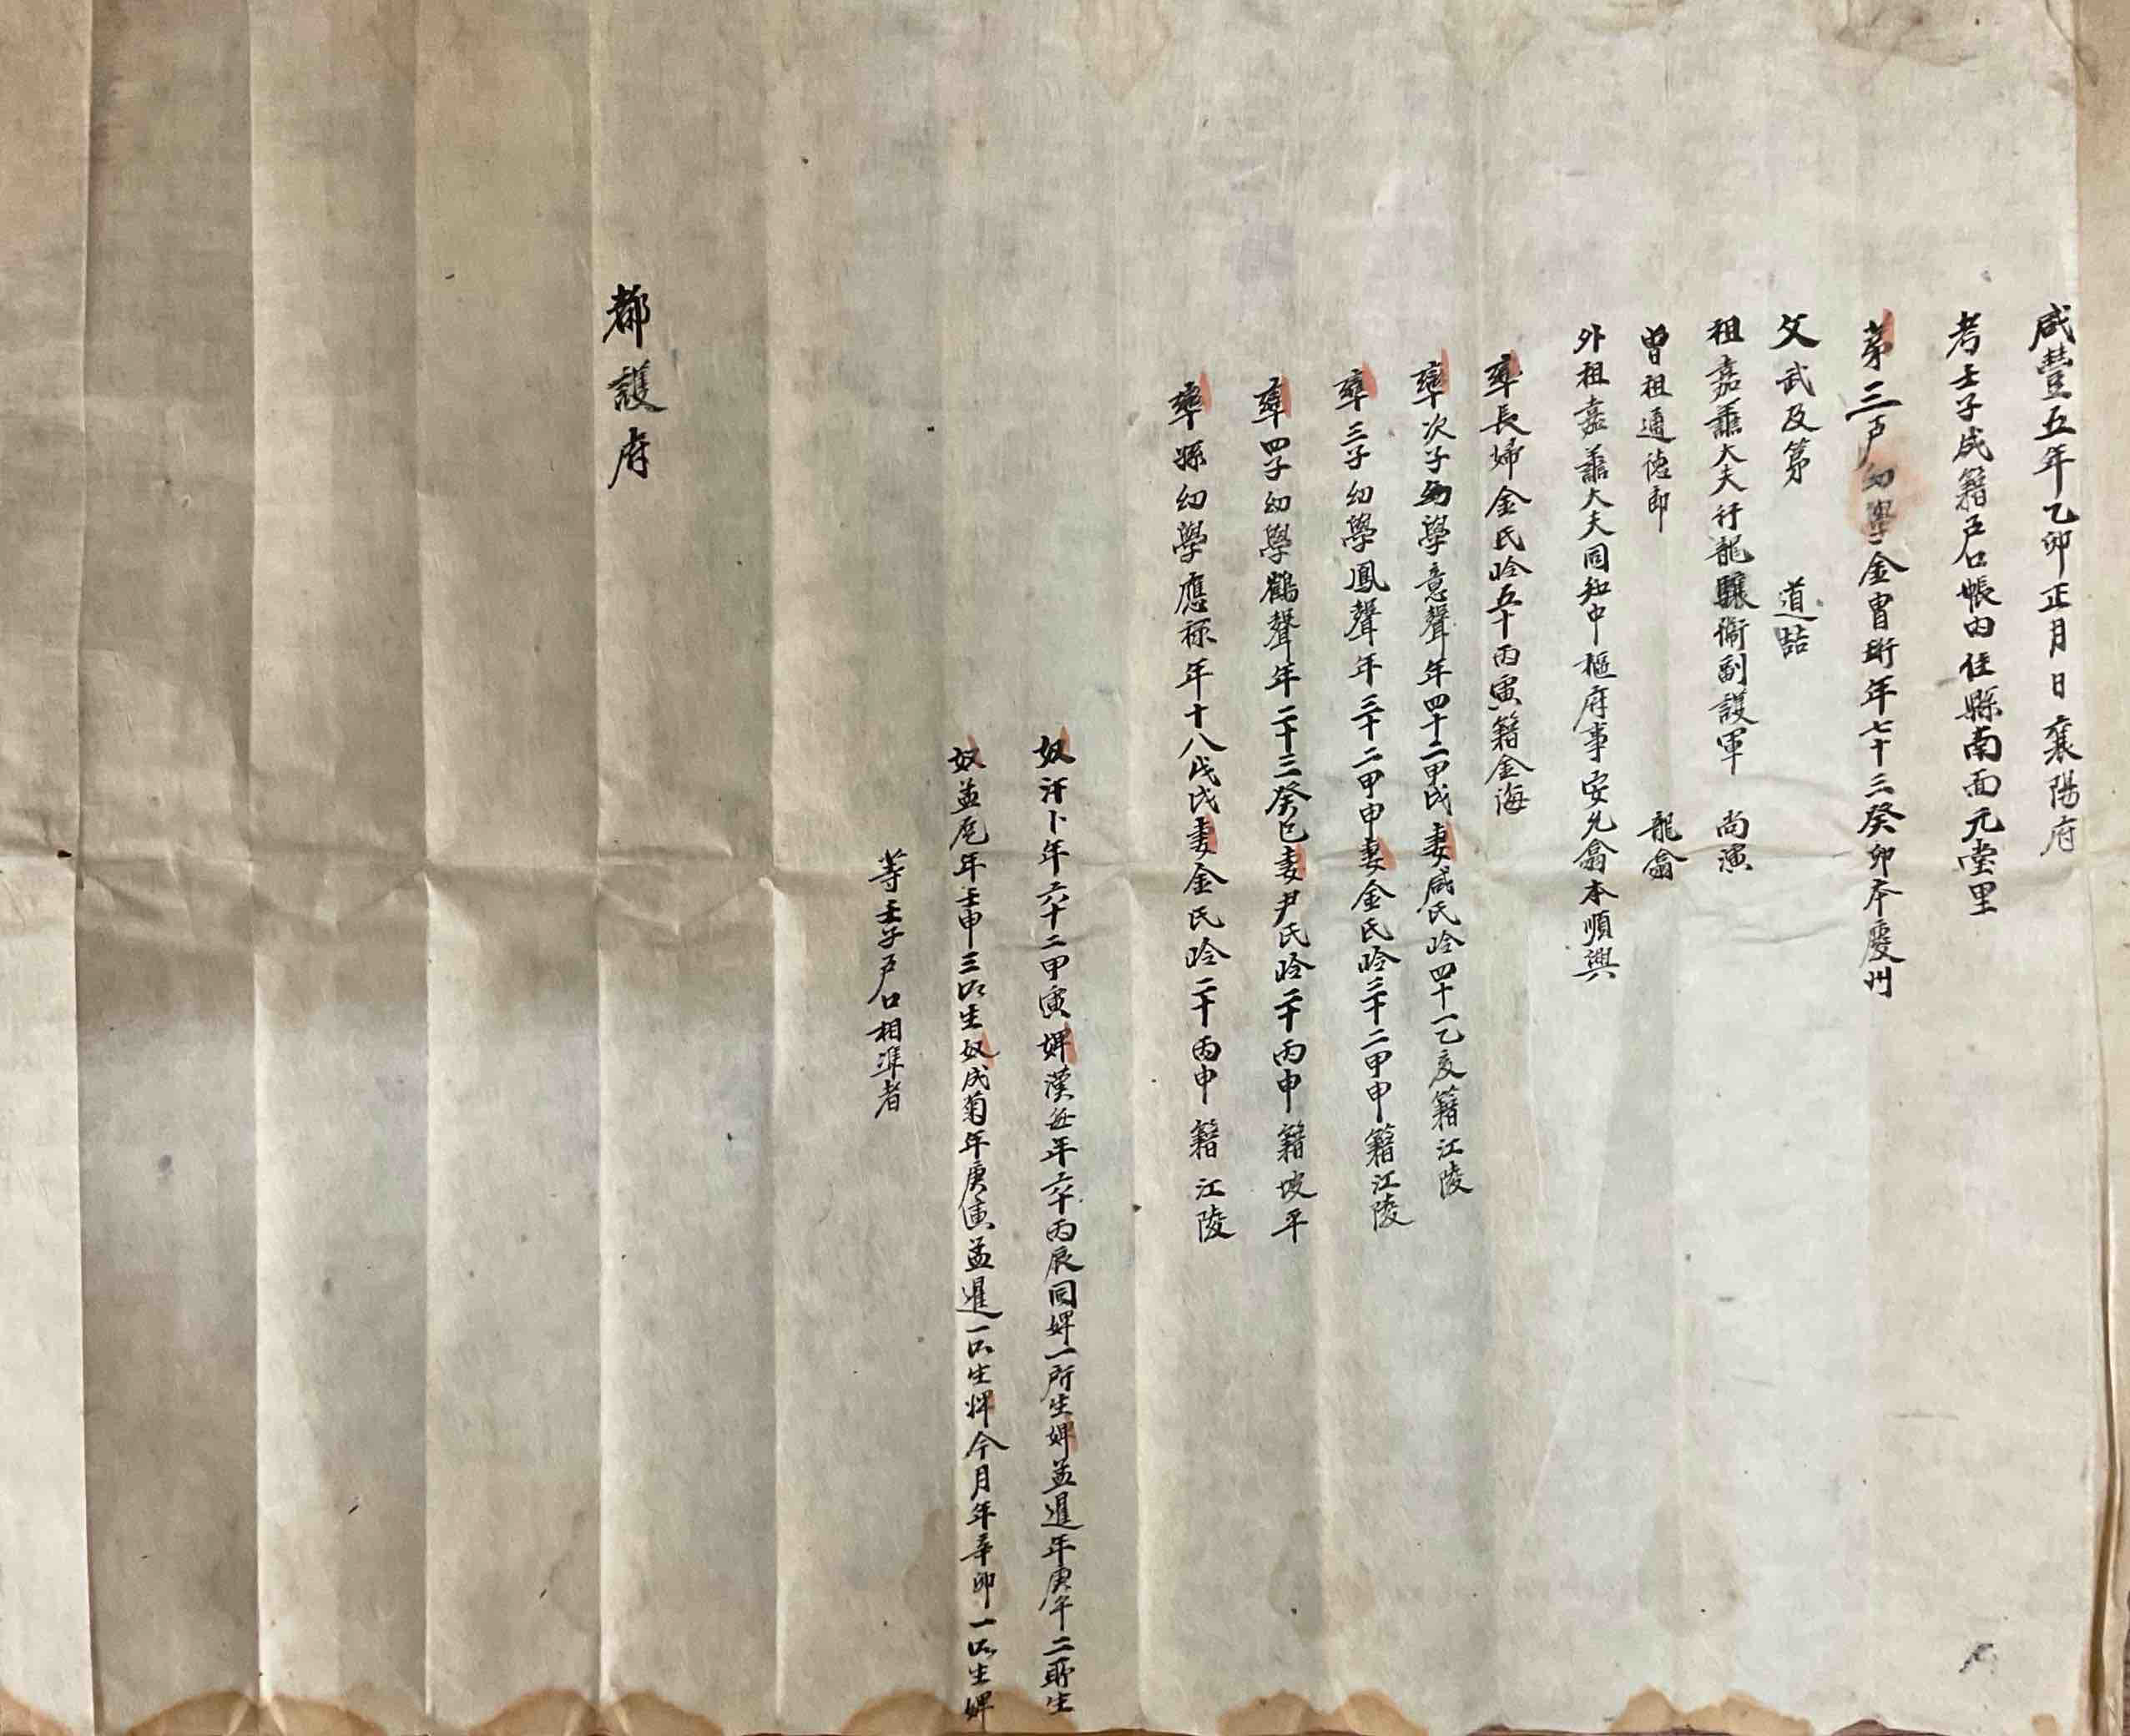 咸豐五年乙卯正月 日襄陽府
考壬子成籍戶口帳內住縣南面元堂里
第三戶幼學金胄珩年七十三癸卯本慶州
父武及第 道喆
祖嘉善大夫行龍驤衛副護軍 尚演
曾祖通德郎 龍翕
外祖嘉善大夫同知中樞府事安允翕本順興
率長婦金氏吟五十丙寅籍金海
率次子幼學意聲年四十二甲戌妻咸氏吟四十一乙亥籍江陵
率三子幼學鳳聲年三十二甲申妻金氏吟三十二甲申籍江陵
率四子幼學鶴聲年二十三癸巳妻尹氏吟二十丙申籍坡平
率孫幼學應祿年十八戊戌妻金氏吟二十丙申籍江陵
奴汗卜年六十二甲寅婢漢每年六十丙辰同婢一所生婢孟暹年庚午二所生
奴孟尨年壬申三所生奴成菊年庚寅孟暹一所生婢今月年辛卯一所生婢
等壬子戶口相準者
都護府